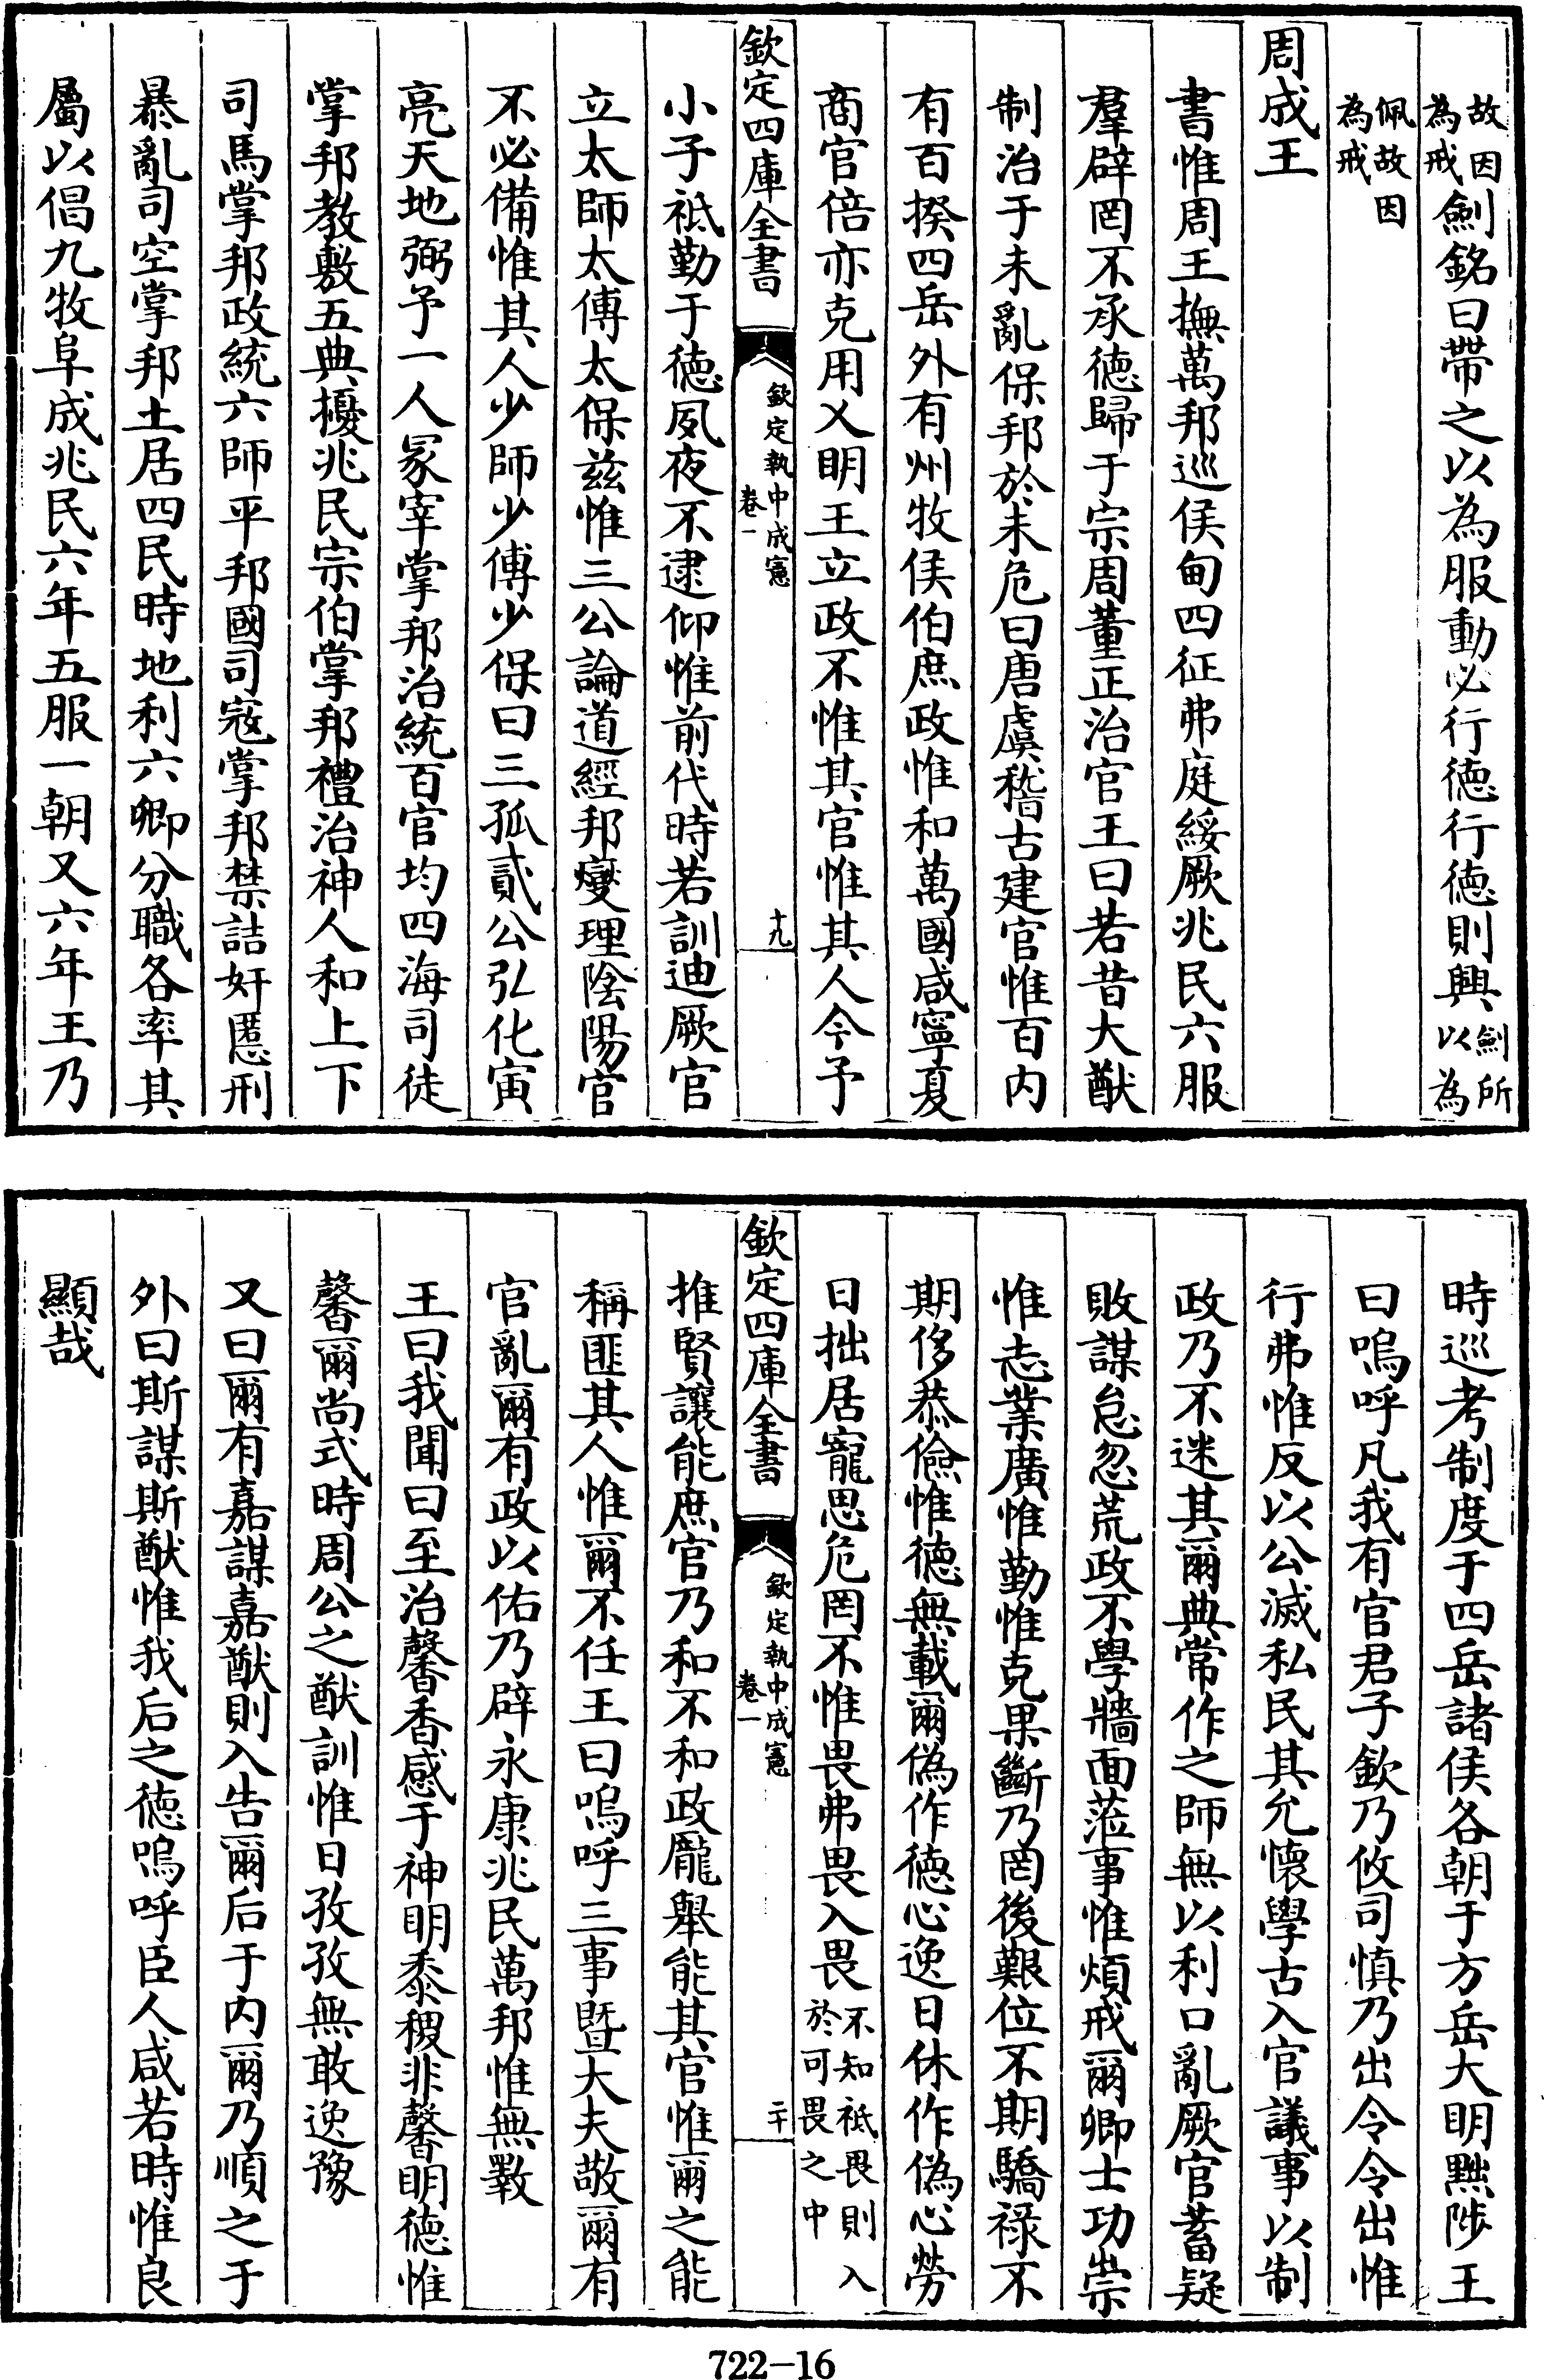 故因為戒劍銘曰帶之以為服動必行徳行徳則興劍所以為
佩故因為戒
周成王
書惟周王撫萬邦巡侯甸四征弗庭綏厥兆民六服
羣辟罔不承徳歸于宗周董正治官王曰若昔大猷
制治于未亂保邦於未危曰唐虞稽古建官惟百内
有百揆四岳外有州牧侯伯庶政惟和萬國咸寧夏
商官倍亦克用乂明王立政不惟其官惟其人今予
欽定四庫全書
欽定執中成憲
卷一
十九
小子祗勤于徳夙夜不逮仰惟前代時若訓迪厥官
立太師太傅太保兹惟三公論道經邦燮理陰陽官
不必備惟其人少師少傅少保曰三孤貳公弘化寅
亮天地弼予一人冢宰掌邦治統百官均四海司徒
掌邦教敷五典擾兆民宗伯掌邦禮治神人和上下
司馬掌邦政統六師平邦國司寇掌邦禁詰奸慝刑
暴亂司空掌邦土居四民時地利六卿分職各率其
屬以倡九牧阜成兆民六年五服一朝又六年王乃
時巡考制度于四岳諸侯各朝于方岳大明黜陟王
曰嗚呼凡我有官君子欽乃攸司慎乃出令令出惟
行弗惟反以公滅私民其允懷學古入官議事以制
政乃不迷其爾典常作之師無以利口亂厥官蓄疑
敗謀怠忽荒政不學牆面莅事惟煩戒爾卿士功崇
惟志業廣惟勤惟克果斷乃罔後艱位不期驕禄不
期侈恭儉惟徳無載爾偽作徳心逸日休作偽心勞
日拙居寵思危罔不惟畏弗畏入畏不知祗畏則入於可畏之中
欽定四庫全書
欽定執中成憲
卷一
二十
推賢讓能庶官乃和不和政厖舉能其官惟爾之能
稱匪其人惟爾不任王曰嗚呼三事暨大夫敬爾有
官亂爾有政以佑乃辟永康兆民萬邦惟無斁
王曰我聞曰至治馨香感于神明黍稷非馨明徳惟
馨爾尚式時周公之猷訓惟日孜孜無敢逸豫
又曰爾有嘉謀嘉猷則入告爾后于内爾乃順之于
外曰斯謀斯猷惟我后之徳嗚呼臣人咸若時惟良
顯哉
722-16